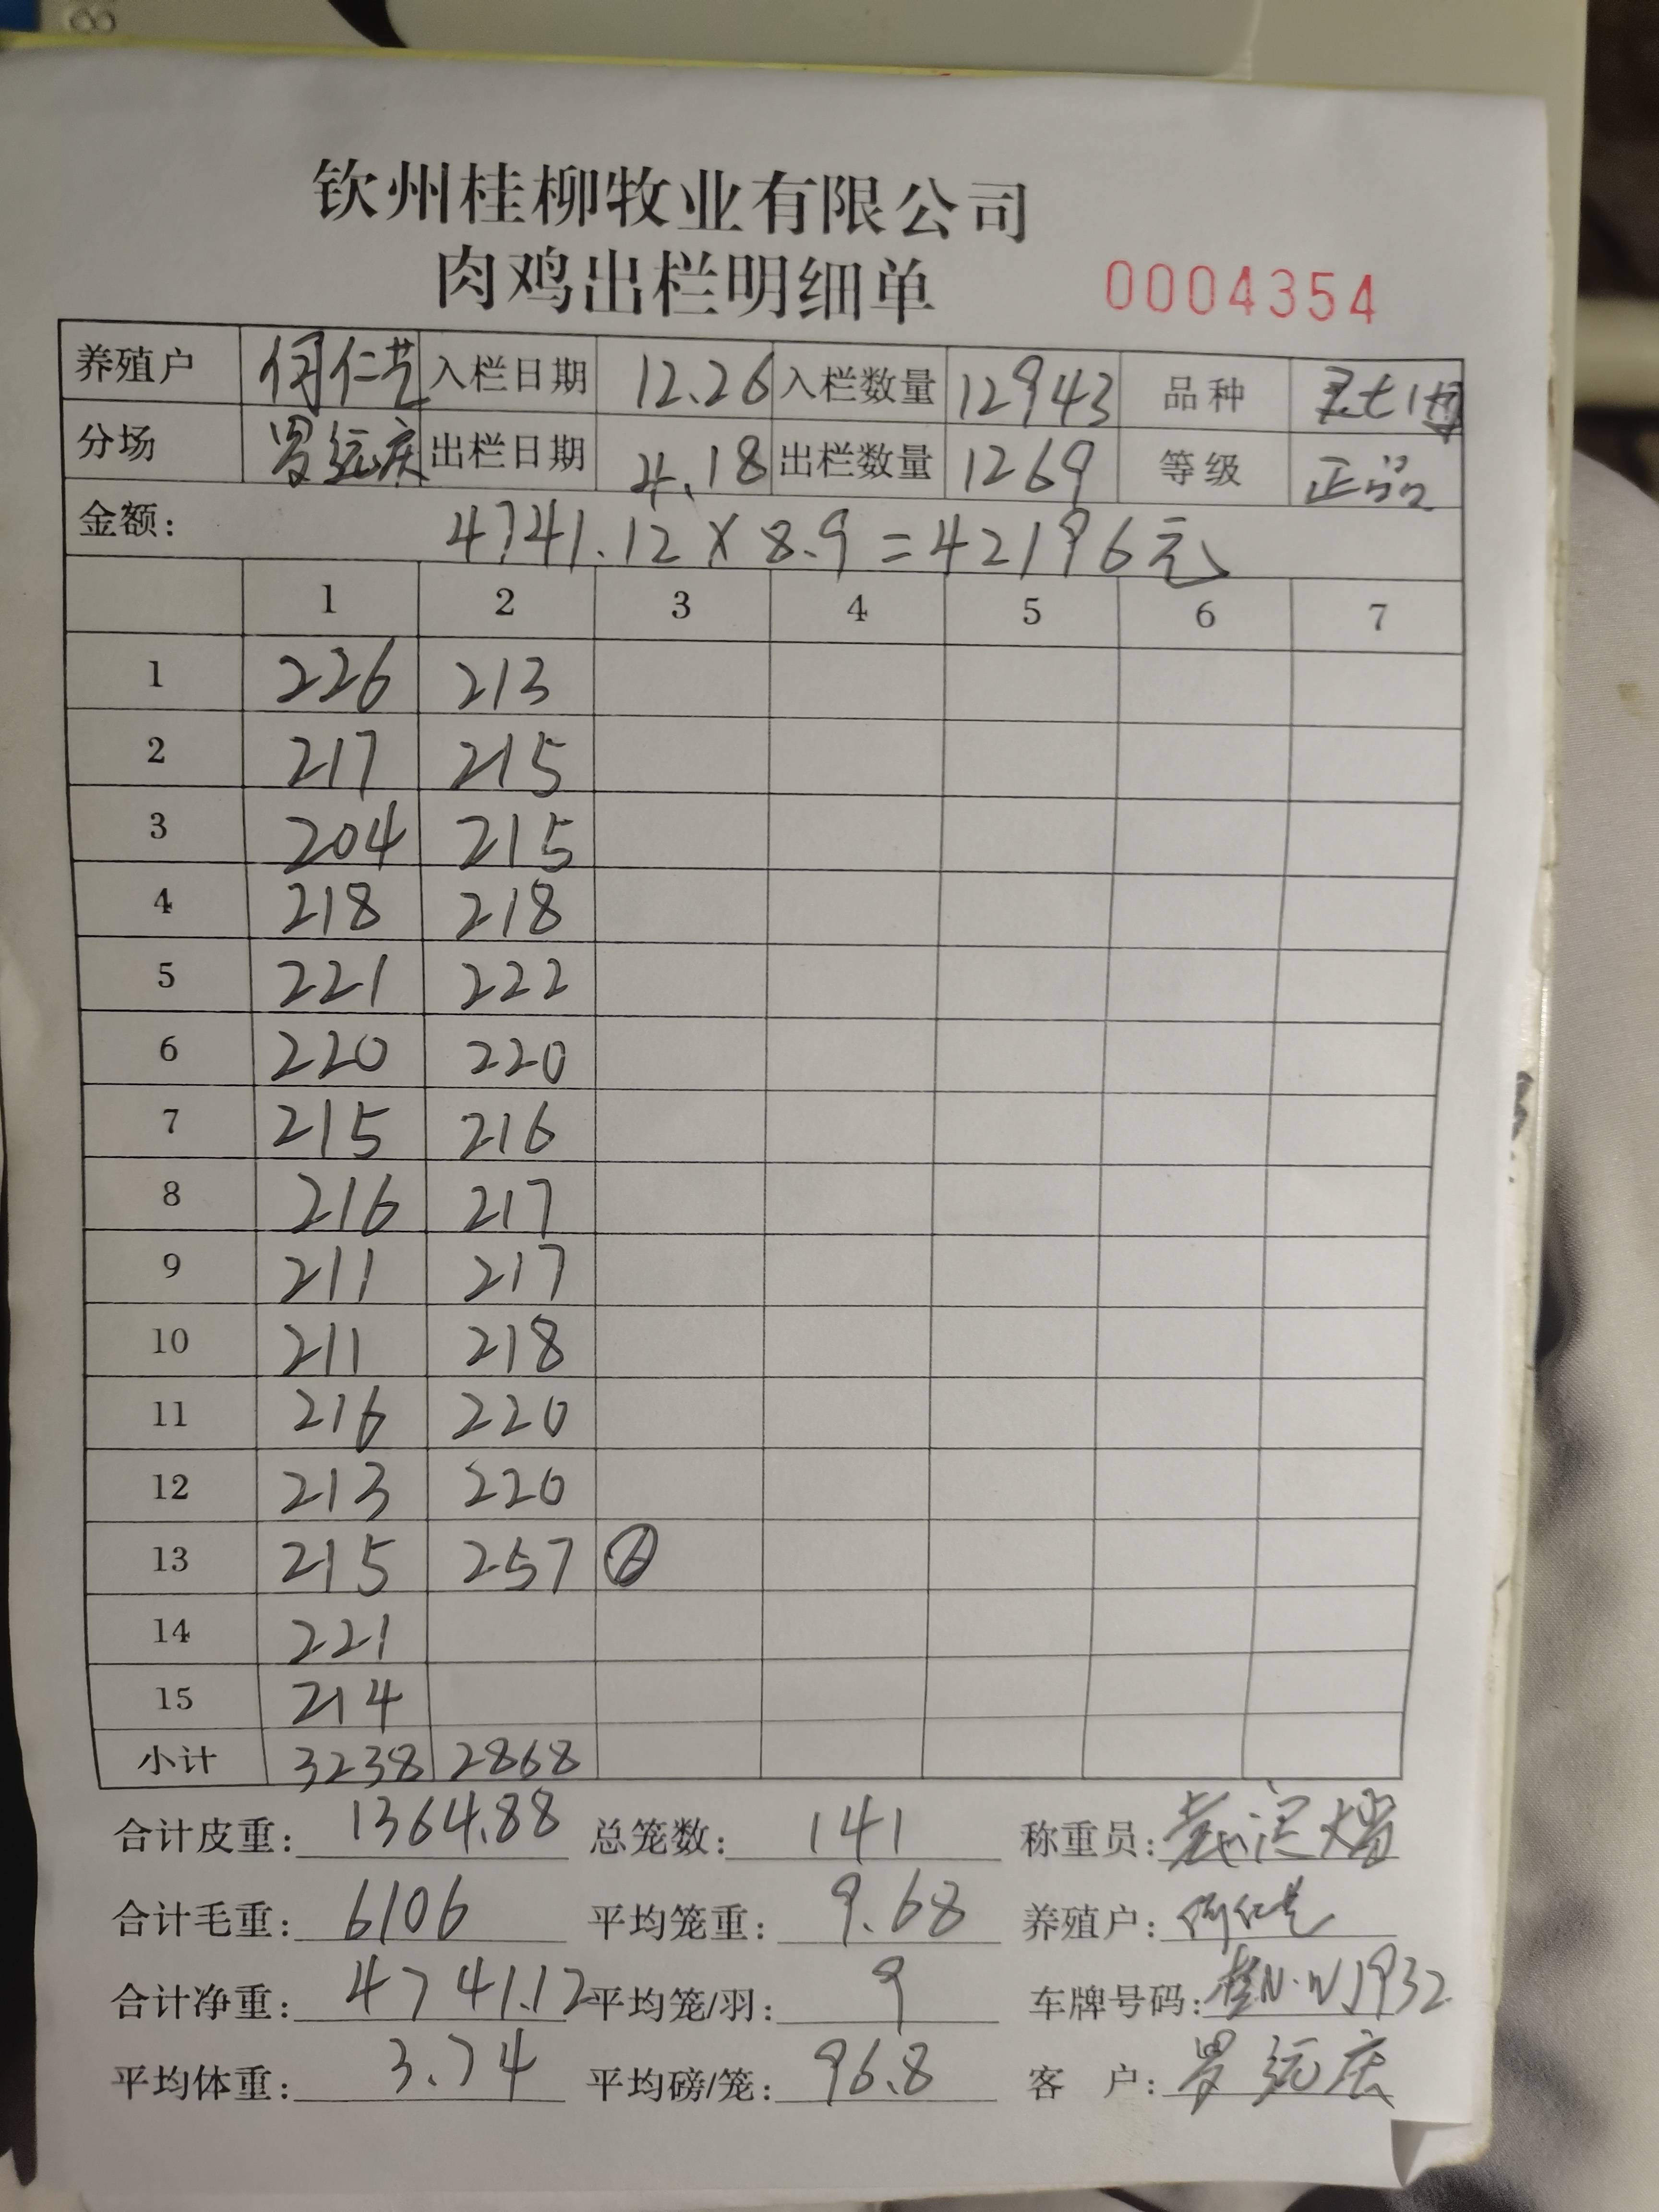 钦州桂柳牧业有限公司
肉鸡出栏明细单 0004354
养殖户 何仁芝 入栏日期 12.26 入栏数量 12943 品种
分场 罗远庆 出栏日期 4.18 出栏数量 1269 等级 正品
金额: 4741.12×8.9=42196元
1 2 3 4 5 6 7
1 226 213
2 217 215
3 204 215
4 218 218
5 221 222
6 220 220
7 215 216
8 216 217
9 211 217
10 211 218
11 216 220
12 213 220
13 215 257 ⑥
14 221
15 214
小计 3238 2868
合计皮重: 1364.88 总笼数: 141 称重员:
合计毛重: 6106 平均笼重: 9.68 养殖户: 何仁芝
合计净重: 4741.12 平均笼/羽: 9 车牌号码: 桂N·WJ932
平均体重: 3.74 平均磅/笼: 96.8 客 户: 罗远庆